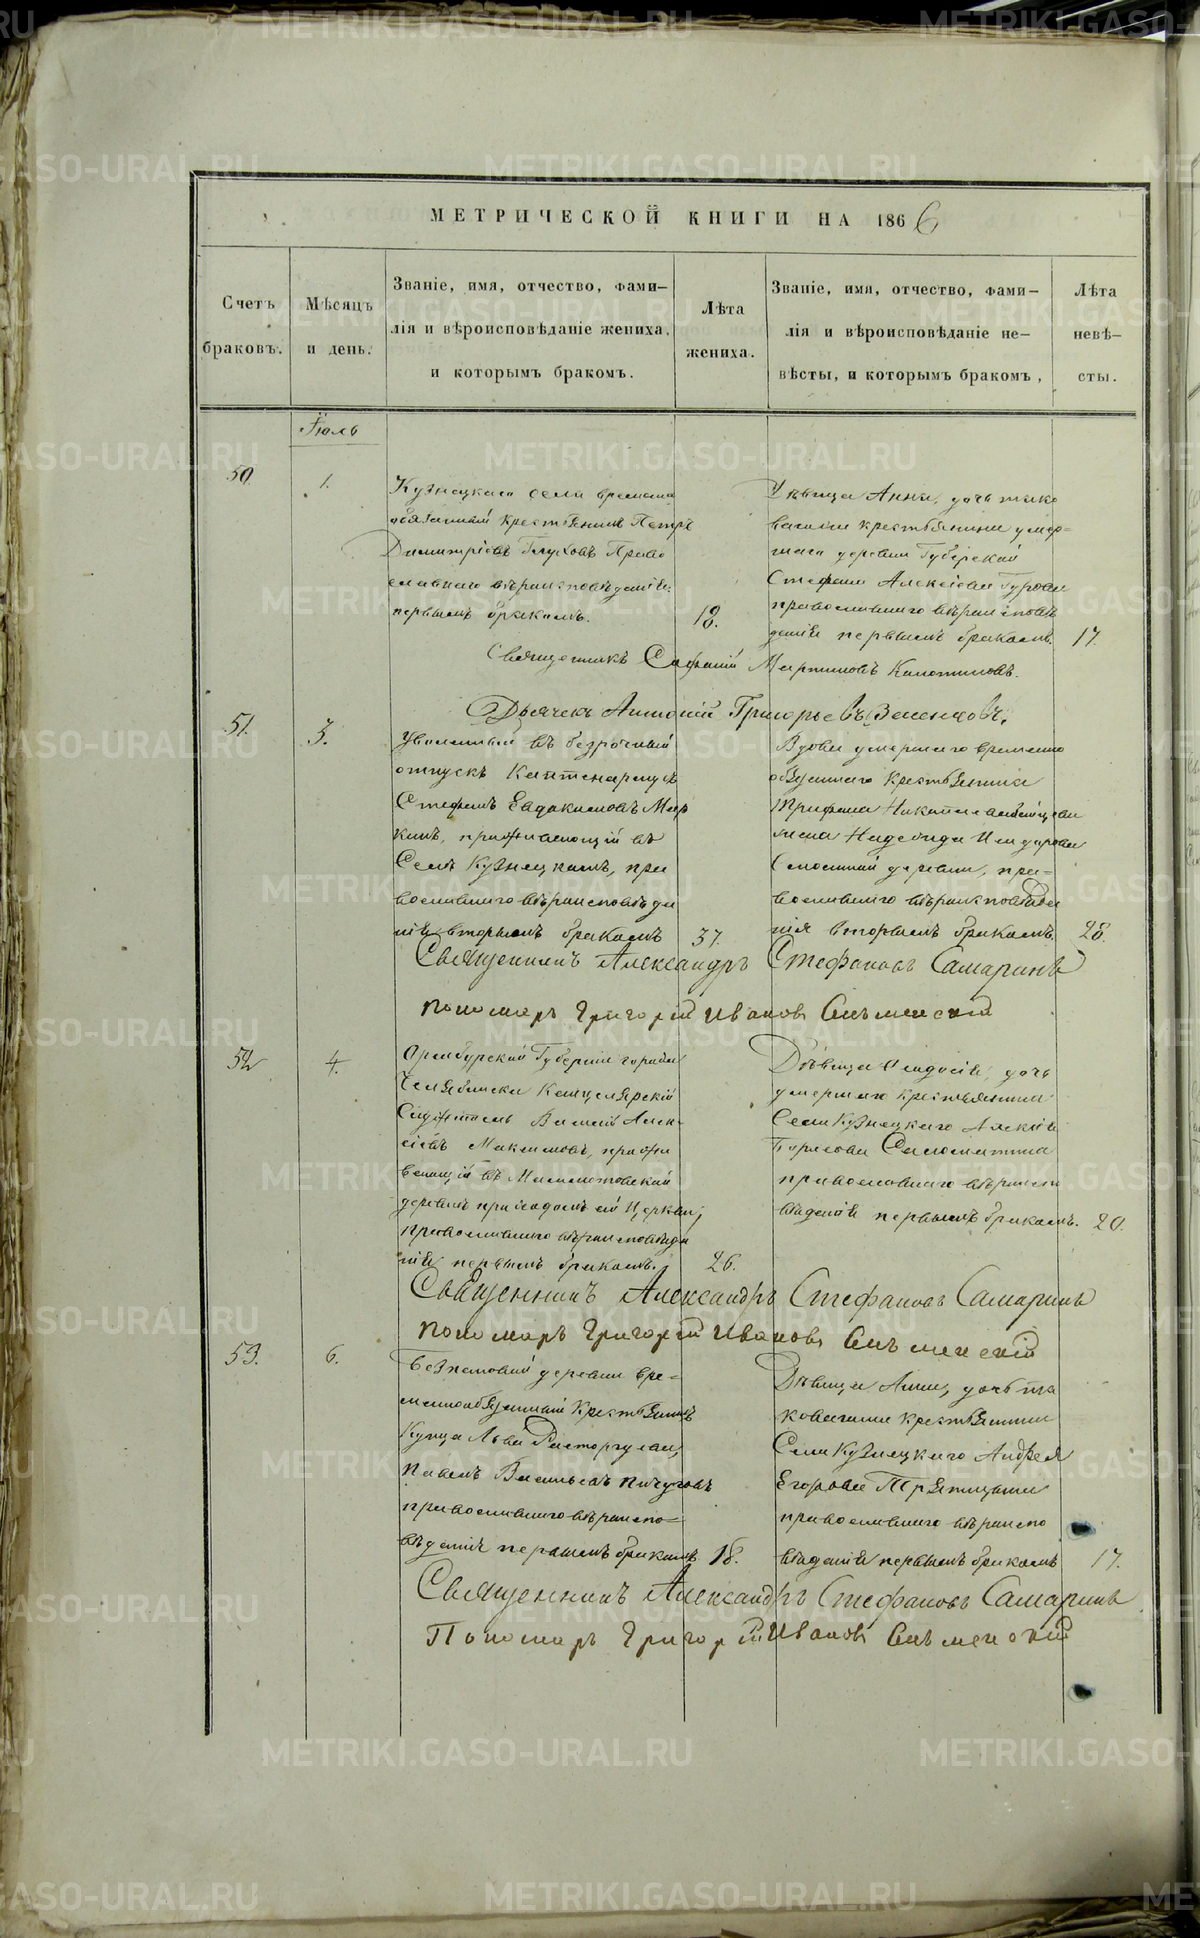 МЕТРИЧЕСКОЙ КНИГИ НА 1866
Счетъ
браковъ.
Мѣсяцъ
и день.
Званіе, имя, отчество, фами-
лія и вѣроисповѣданіе жениха,
и которымъ бракомъ.
Лѣта
жениха.
Званіе, имя, отчество, фами-
лія и вѣроисповѣданіе не-
вѣсты, и которымъ бракомъ,
Лѣта
невѣ-
сты.
Іюль
50.
1.
Кузнецкаго села временно
обязанный крестьянинъ Петръ
Димитріевъ Глуховъ Право
славнаго вѣроисповѣданія
первымъ бракомъ.
18.
Дѣвица Анна, дочь тако
ваго крестьянина умер-
шаго деревни
Стефана Алексіева Гурова
православнаго вѣроисповѣ
данія первымъ бракомъ.
17.
Священникъ Мартиновъ
Дьячекъ Антоній Григорьевъ Зеленцовъ.
51.
3.
Уволенный въ безсрочный
отпускъ
Стефанъ Евдокимовъ Мар
кинъ, проживающій въ
Селѣ Кузнецкомъ, пра
вославнаго вѣроисповѣда
нія вторымъ бракомъ
37.
Вдова умершаго временно
обязаннаго крестьянина
Трифона
жена Надежда
деревни, пра-
вославнаго вѣроисповѣда
нія вторымъ бракомъ.
28.
Священникъ Александръ Стефановъ Самаринъ
пономарь Григорій Ивановъ
52
4.
Оренбургской Губерніи города
Челябинска Канцелярскій
Служитель Василій Алек-
сіевъ Максимовъ, прожи
вающій въ
деревнѣ приходомъ сей Церкви,
православнаго вѣроисповѣда
нія первымъ бракомъ.
26.
Дѣвица дочь
умершаго крестьянина
Села Кузнецкаго Алексія
Борисова
православнаго вѣроиспо
вѣданія первымъ бракомъ.
20.
Священникъ Александръ Стефановъ Самаринъ
пономарь Григорій Ивановъ
53.
6.
деревни вре-
меннообязанный крестьянинъ
Купца Льва Расторгуева,
Павелъ Васильевъ Пичуговъ
православнаго вѣроиспо-
вѣданія первымъ бракомъ
18.
Дѣвица Анна, дочь та
коваго же крестьянина
Села Кузнецкаго Андрея
Егорова
православнаго вѣроиспо
вѣданія первымъ бракомъ
17.
Священникъ Александръ Стефановъ Самаринъ
Пономарь Григорій Ивановъ
METRIKI.GASO-URAL.RU